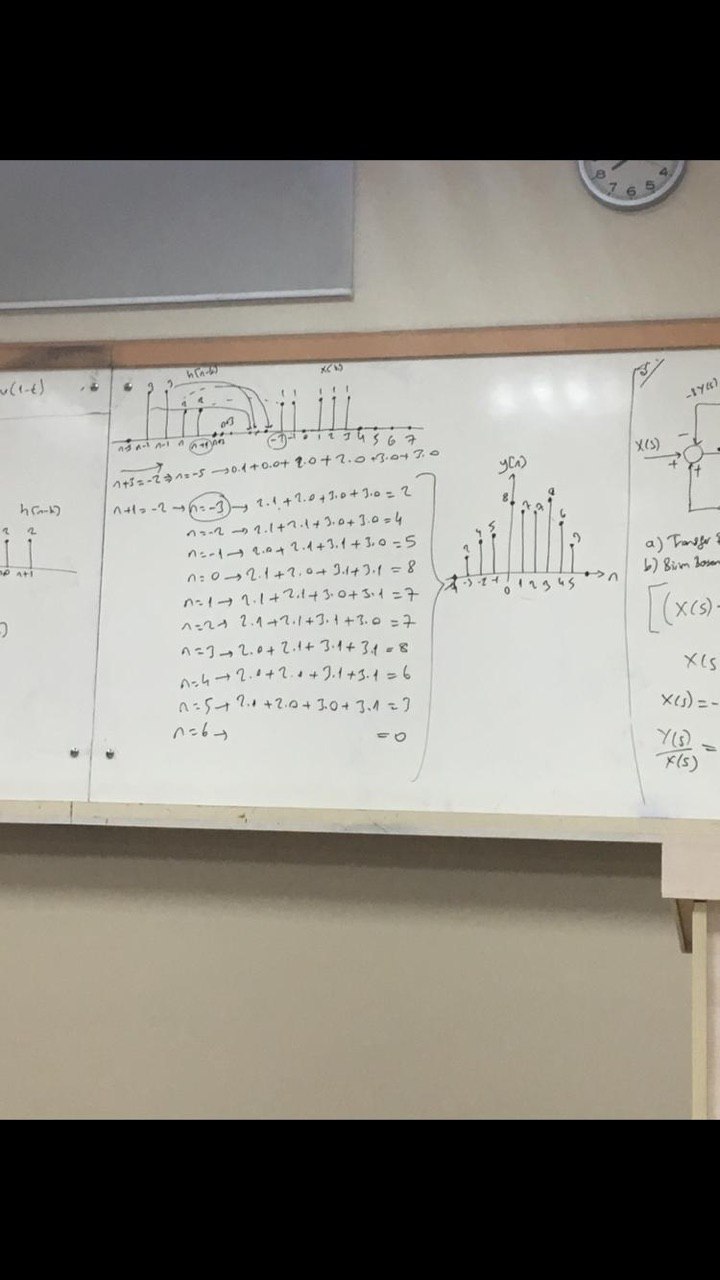 8 7 6 5 4
v(1-t)
h(n-k)
2 2
n+1
h(n-k) x(k)
3 3 2 2 1 1 1 1 1
n n+1 -2 -1 0 1 2 3 4 5 6 7
n+3=-2 → n=-5 → 0.1+0.0+2.0+2.0+3.0+3.0
n+1=-2 → n=-3 → 2.1+2.0+3.0+3.0=2
n=-2 → 2.1+2.1+3.0+3.0=4
n=-1 → 2.0+2.1+3.1+3.0=5
n=0 → 2.1+2.0+3.1+3.1=8
n=1 → 2.1+2.1+3.0+3.1=7
n=2 → 2.1+2.1+3.1+3.0=7
n=3 → 2.0+2.1+3.1+3.1=8
n=4 → 2.0+2.0+3.1+3.1=6
n=5 → 2.0+2.0+3.0+3.1=3
n=6 → =0
y(n)
2 4 5 8 7 7 8 6 3
-3 -2 -1 0 1 2 3 4 5 n
5/
-3Y(s)
X(s) + - +
a) Transfer
b) Birim
[(X(s)-
X(s
X(s)=-
Y(s)/X(s) =